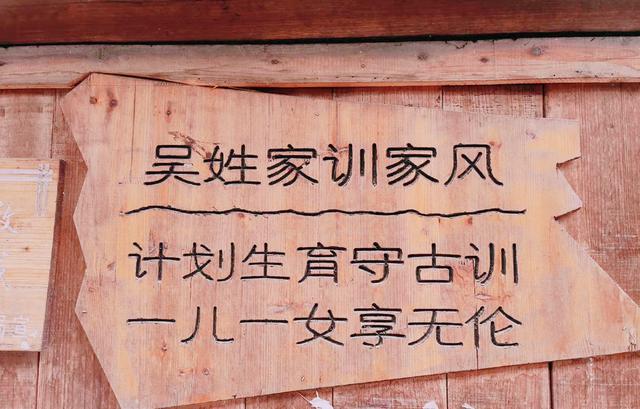 吴姓家训家风
计划生育守古训
一儿一女享无伦